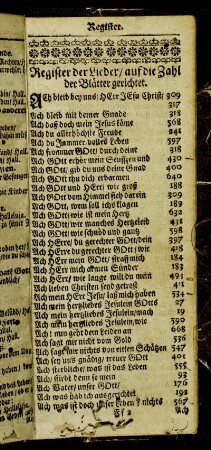 Register.
Register der Lieder/ auf die Zahl
der Blätter gerichtet.
Ach bleib bey uns/ HErr JEsu Christ 309
317
Ach bleib mit deiner Gnade 318
Ach daß doch mein Jesus käme 568
Ach du allerhöchste Freude 241
Ach du Jammer-volles Leben 597
Ach frommer GOtt/ durch deine 318
Ach GOtt erhör mein Seuffzen und 430
Ach GOtt/ gib du uns deine Gnad 400
Ach GOtt thu dich erbarmen 640
Ach GOtt und HErr/ wie groß 188
Ach GOtt vom Himmel sieh darein 309
Ach GOtt/ wem soll ich klagen 189
Ach GOtt/ wie ist mein Hertz 632
Ach GOtt/ wie manches Hertzeleid
Ach GOtt wie schnöd und gantz 598
Ach HErre/ du gerechter GOtt/ dein 397
Ach HErre du gerechter GOtt/ wir 418
Ach HErr mein GOtt/ straf mich 184
Ach HErr mich armen Sünder 183
Ach HErr/ wie lange wilt du mein 491
Ach lieben Christen seyd getrost
Ach mein HErr Jesu/ laß mich haben 534
Ach mein hertzliebes Jesulein 27
Ach mein hertzliebes Jesulein/ mach
hertzliebes Jesulein/ wie 590
gen 668
Ach sagt mir nicht vom Gold 536
Ach sagt mir nichts von eiteln Schätzen 547
Ach sey uns gnädig/ treuer GOtt 401
Ach sterbliche/ was ist das Leben 555
Ach/ stirbt denn so mein 93
Ach Vater/ unser GOtt/ 176
Ach was hab ich ausgerichtet 192
Ach was ist doch unser Leben/ nichts 567
Ach